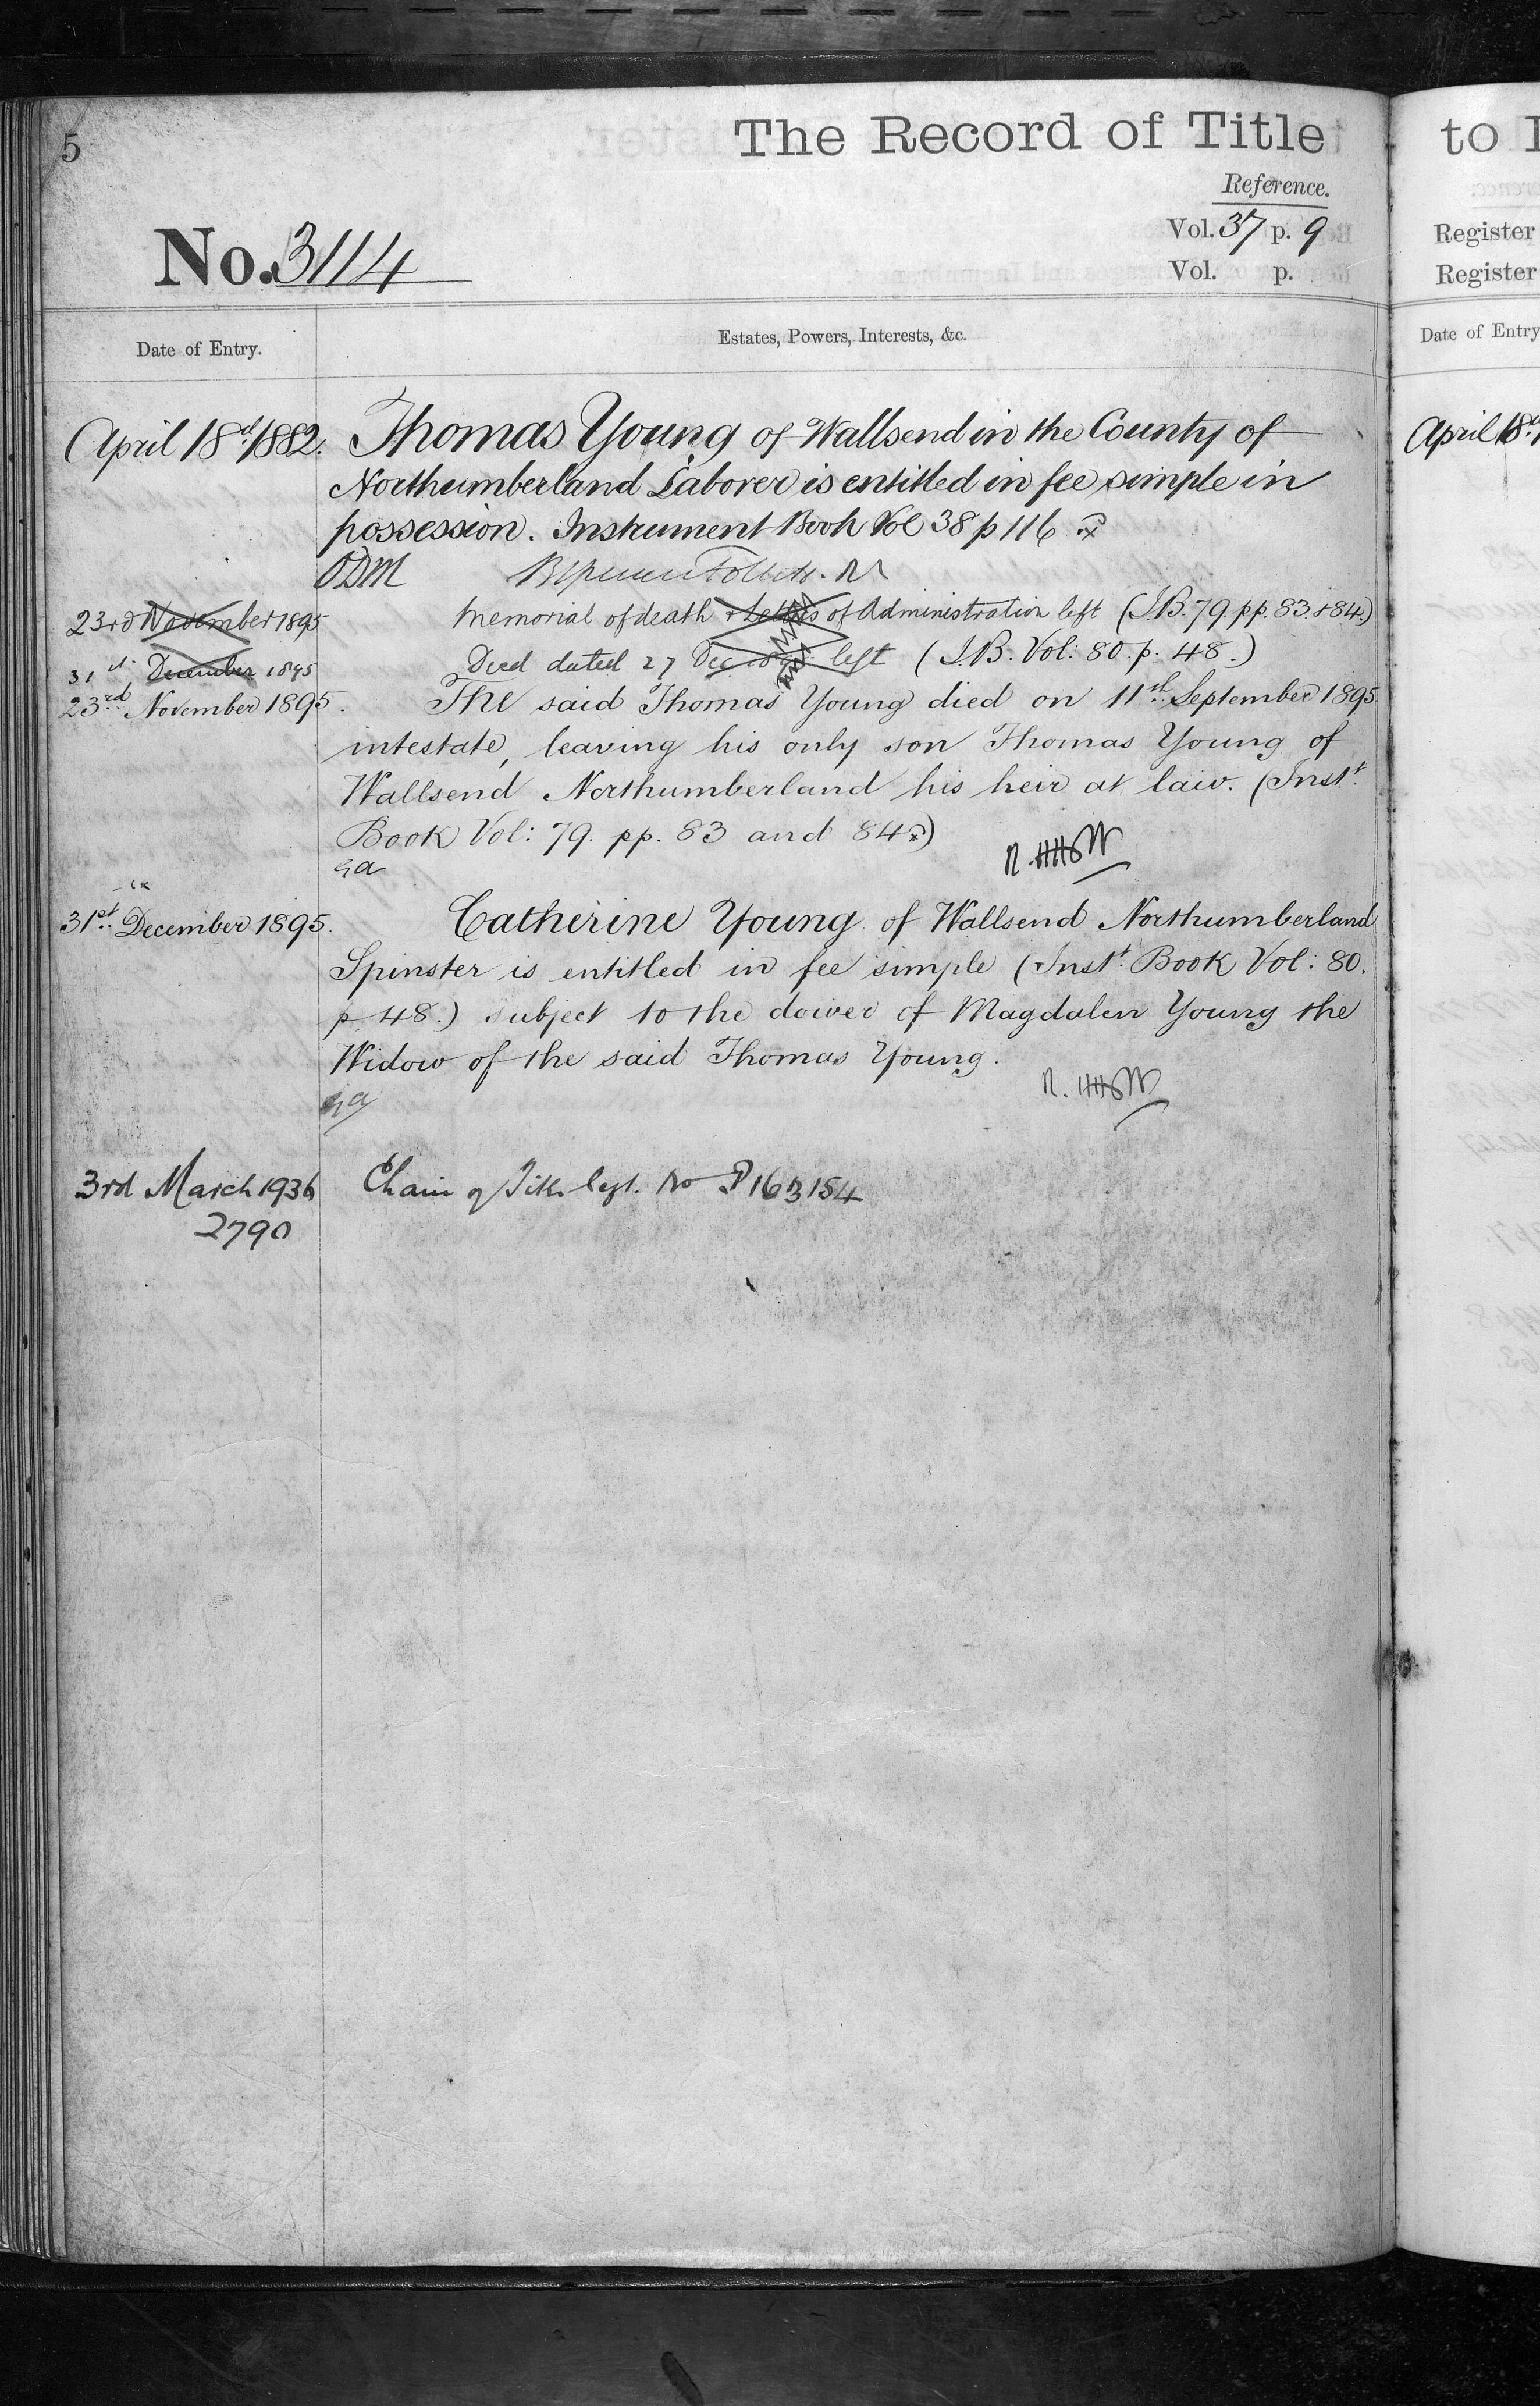 5
The Record of Title
to
Reference.
Vol. 37 p. 9
Register
No. 3114
Vol. p.
Register
Date of Entry.
Estates, Powers, Interests, &c.
Date of Entry
April 18th 1882.
Thomas Young of Wallsend in the County of
Northumberland Laborer is entitled in fee simple in
possession. Instrument Book Vol 38 p 116
April 18
23rd November 1895
Memorial of death & Letters of Administration left (I.B. 79. pp. 83 & 84.)
31st December 1895
Deed dated 27 Dec 1895 left (I.B. Vol: 80. p. 48.)
23rd November 1895.
The said Thomas Young died on 11th September 1895.
intestate, leaving his only son Thomas Young of
Wallsend Northumberland his heir at law. (Instt.
Book Vol: 79. pp. 83 and 84)
31st December 1895.
Catherine Young of Wallsend Northumberland
Spinster is entitled in fee simple (Instt. Book Vol: 80.
p. 48.) subject to the dower of Magdalen Young the
Widow of the said Thomas Young.
3rd March 1936
Chain of Title Regt. No P163154
2790